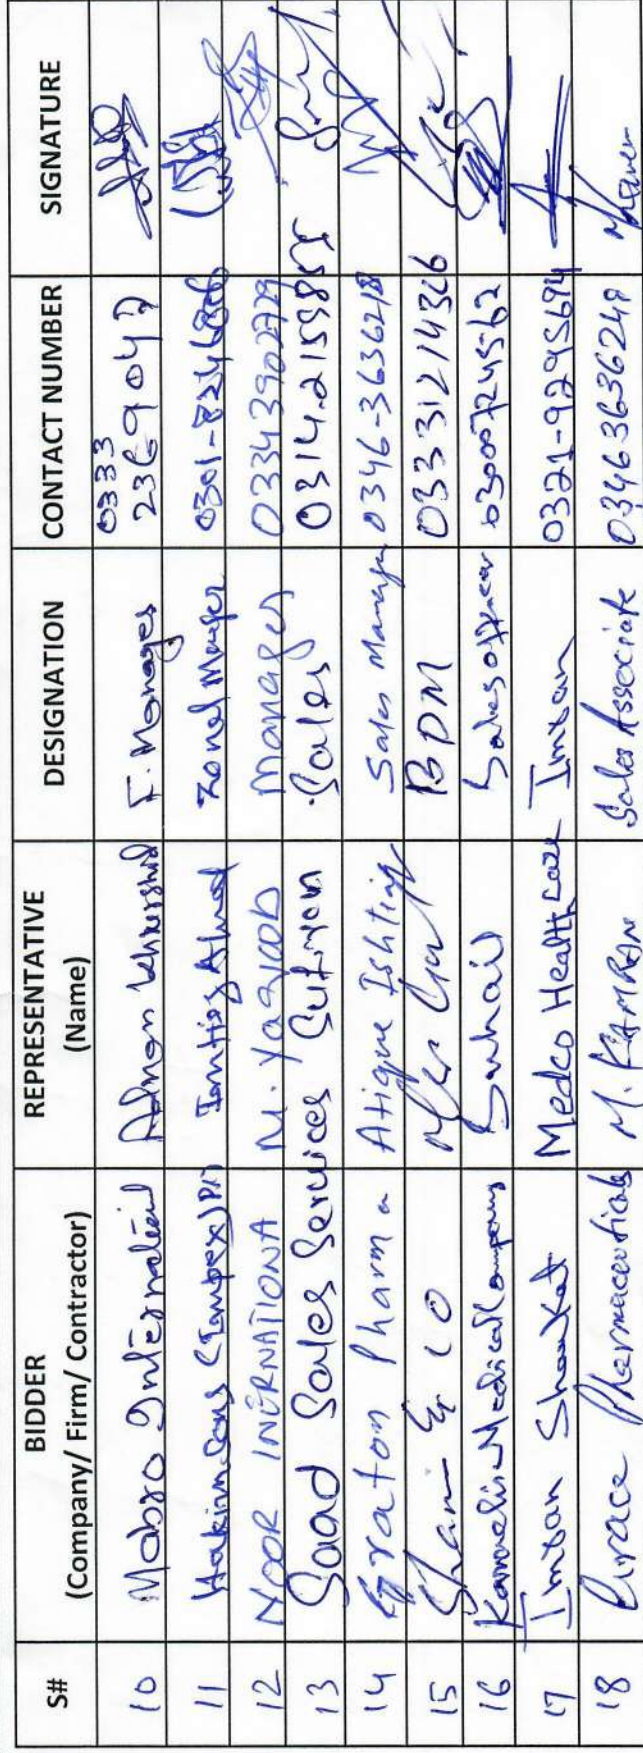 S# BIDDER (Company/ Firm/ Contractor) REPRESENTATIVE (Name) DESIGNATION CONTACT NUMBER SIGNATURE
10 Mabro International Adnan Khurshid F. Manager 0333 2369047
11 Hakimsons (Impex) Pvt Imtiaz Ahmed Zonel Manger 0301-8246806
12 NOOR INERNATIONA M. YAQOOB Manager 03343902729
13 Saad Sales Services Sufiyan Sales 0314-2159855
14 Graton Pharma Atique Ishtiaq Sales Manager 0346-3636218
15 Sham & CO BDM 03331214326
16 Medical Company Suhail Sales officer 03007245562
17 Imran Shaukat Medco Health care Imran 0321-9295694
18 Pharmaceuticals M. KAMRAN Sales Associate 03463636248